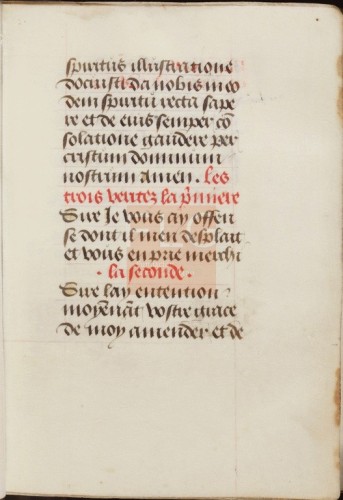 spiritus illustratione
docuisti da nobis in eo
dem spiritu recta sape
re et de eius semper cō
solatione gaudere per
cristum dominum
nostrum amen. Les
trois veritez la p̄miere
Sire Je vous ay offen
se dont il men desplait
et vous en prie merchi
· la seconde ·
Sire iay entention
moyenāt vostre grace
de moy amender et de